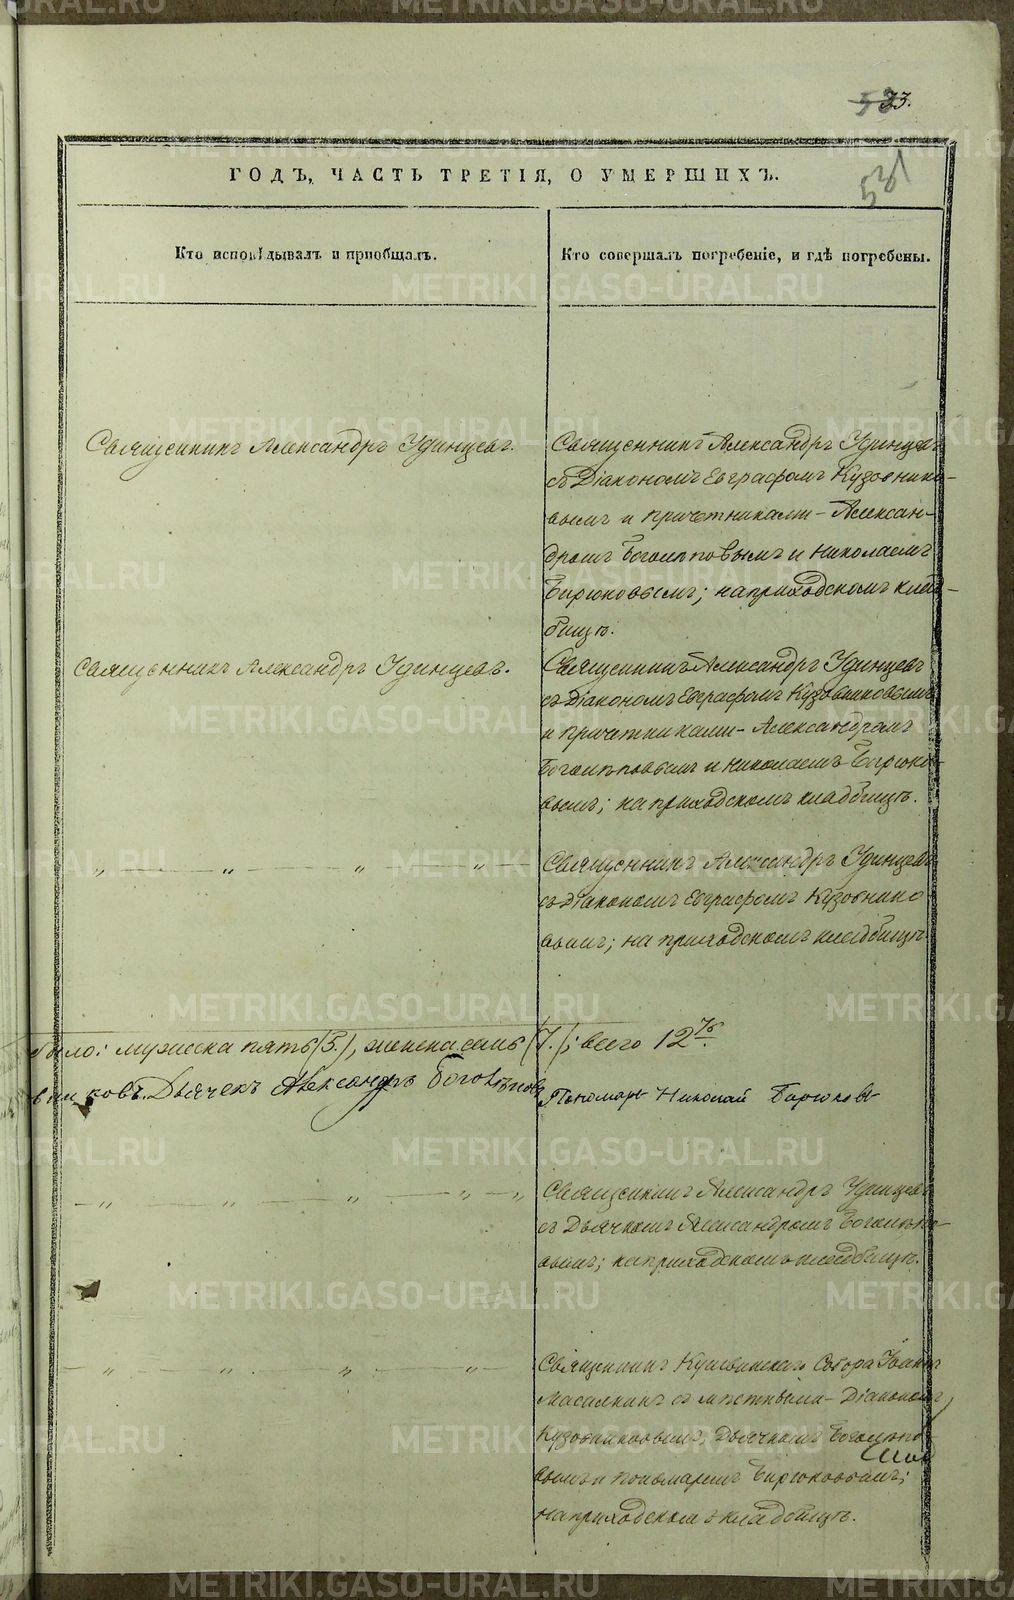 33.
531
ГОДЪ, ЧАСТЬ ТРЕТІЯ, О УМЕРШИХЪ.
Кто исповѣдывалъ и пріобщалъ.
Кто совершалъ погребеніе, и гдѣ погребены.
Священникъ Александръ Удинцевъ.
Священникъ Александръ Удинцевъ
съ Діакономъ Евграфомъ Кузовнико-
вымъ и причетниками - Алексан-
дромъ Боголѣповымъ и Николаемъ
Бирюковымъ; на приходскомъ клад-
бищѣ.
Священникъ Александръ Удинцевъ.
Священникъ Александръ Удинцевъ
съ Діакономъ Евграфомъ Кузовниковымъ
и причетниками - Александромъ
Боголѣповымъ и Николаемъ Бирюко-
вымъ; на приходскомъ кладбищѣ.
„ — „ — „ — „ —
Священникъ Александръ Удинцевъ
съ Діакономъ Евграфомъ Кузовнико
вымъ; на приходскомъ кладбищѣ.
было: мужеска пять (5.), женска семь (7.); всего 12.
виковъ. Дьячекъ Александръ Боголѣповъ
Пономарь Николай Бирюковъ
— „ — „ — „ — „ — „
Священникъ Александръ Удинцевъ
съ Дьячкомъ Александромъ Боголѣпо-
вымъ; на приходскомъ кладбищѣ.
— „ — „ — „ — „ —
Священникъ Кушвинскаго Собора Іоаннъ
Масалкинъ съ мѣстными - Діакономъ
Кузовниковымъ, Дьячкомъ Боголѣпо-
вымъ и пономаремъ Бирюковымъ;
на приходскомъ кладбищѣ.
METRIKI.GASO-URAL.RU